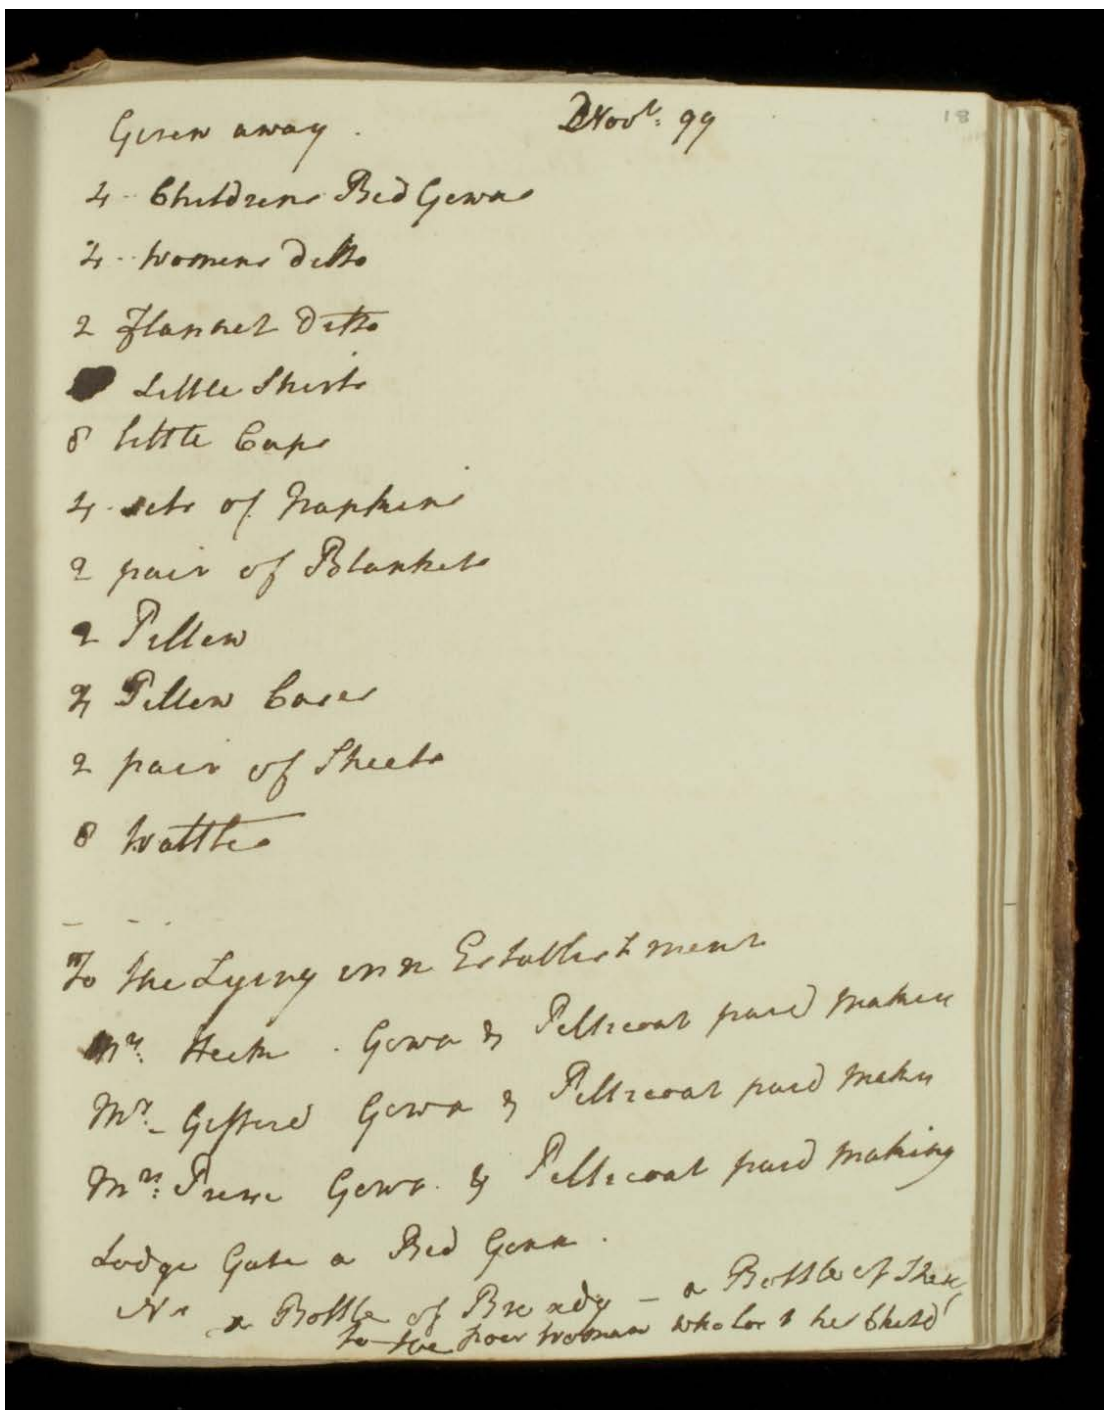 Given away. Novr: 99 18
4 Childrens Bed Gowns
4 Womens Ditto
2 flannel Ditto
Little Shirts
8 little Caps
4 sets of Napkins
2 pair of Blankets
2 Pillow
4 Pillow Cases
2 pair of Sheets
8 Wattles
To the Lying inn Establishment
Mrs: Gown & Petticoat paid making
Mrs. Gifford Gown & Petticoat paid making
Mrs: Gown & Petticoat paid making
Lodge Gate a Bed Gown.
a Bottle of Brandy – a Bottle of
to the poor Woman who lost her Child